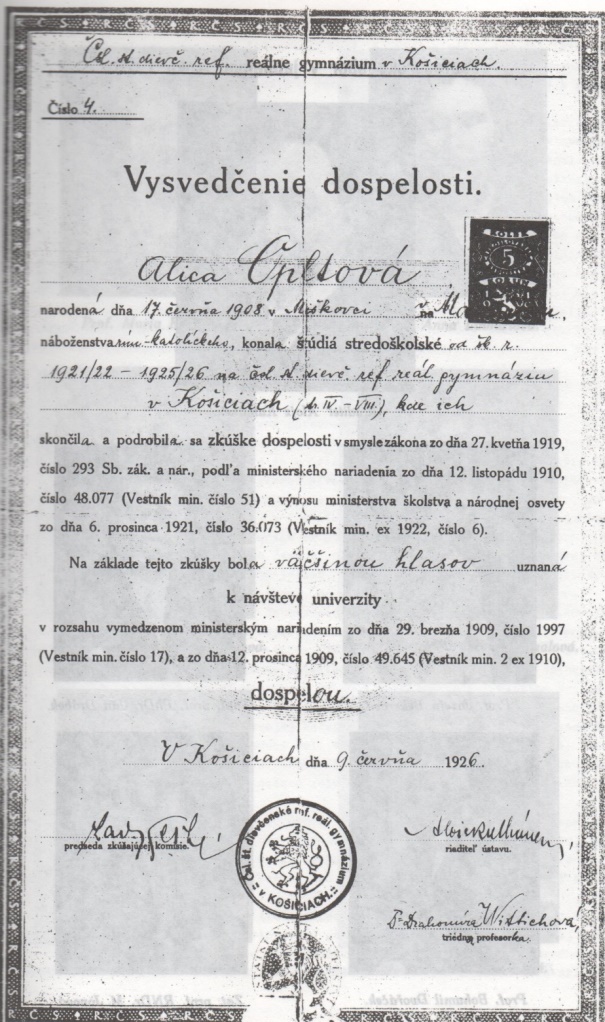 Čsl. st. dievč. ref. reálne gymnázium v Košiciach.
Číslo 4.
Vysvedčenie dospelosti.
5
Alica Opltová
narodená dňa 17. června 1908 v Miškovci v na
náboženstva rím. katolíckeho, konala štúdiá stredoškolské od šk. r.
1921/22 – 1925/26 na čsl. st. dievč. ref. reál. gymnáziu
v Košiciach (tr. IV. – VIII.), kde ich
skončila a podrobila sa zkúške dospelosti v smysle zákona zo dňa 27. kvetňa 1919,
číslo 293 Sb. zák. a nar., podľa ministerského nariadenia zo dňa 12. listopádu 1910,
číslo 48.077 (Vestník min. číslo 51) a výnosu ministerstva školstva a národnej osvety
zo dňa 6. prosinca 1921, číslo 36.073 (Vestník min. ex 1922, číslo 6).
Na základe tejto zkúšky bola väčšinou hlasov uznaná
k návšteve univerzity
v rozsahu vymedzenom ministerským nariadením zo dňa 29. brezňa 1909, číslo 1997
(Vestník min. číslo 17), a zo dňa 12. prosinca 1909, číslo 49.645 (Vestník min. 2 ex 1910),
dospelou.
V Košiciach dňa 9. června 1926.
predseda zkúšajúcej komisie.
riaditeľ ústavu.
Čsl. št. dievčenské ref. reál. gymnázium
v KOŠICIACH.
Dr. Drahomíra Wittichová
triédna profesorka.
Prof. Bohumil Dvořáček